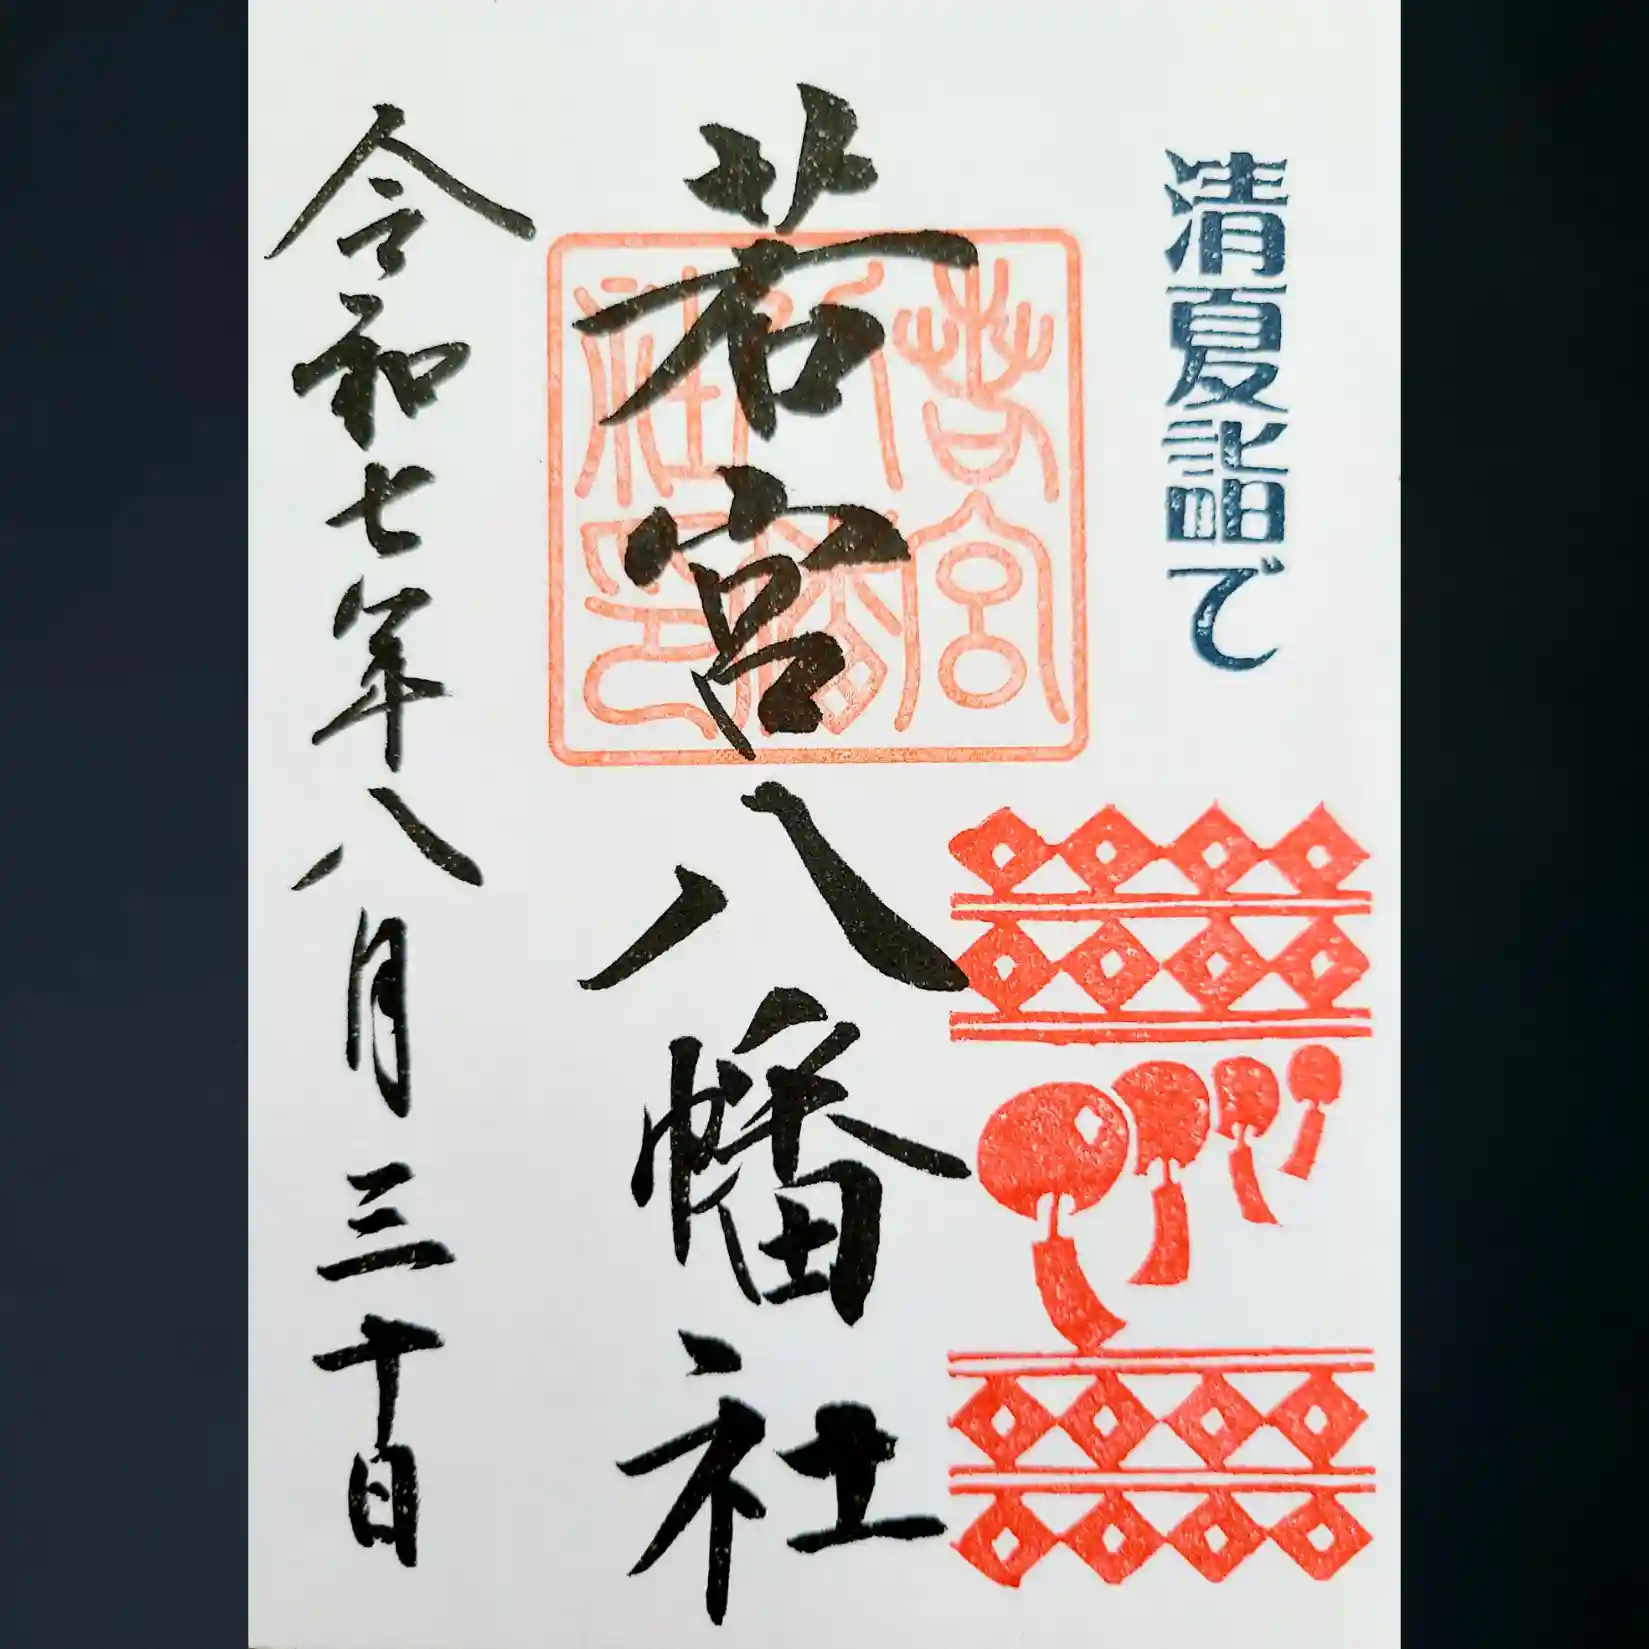 清夏詣で
若宮八幡社
若宮八幡社印
令和七年八月三十日